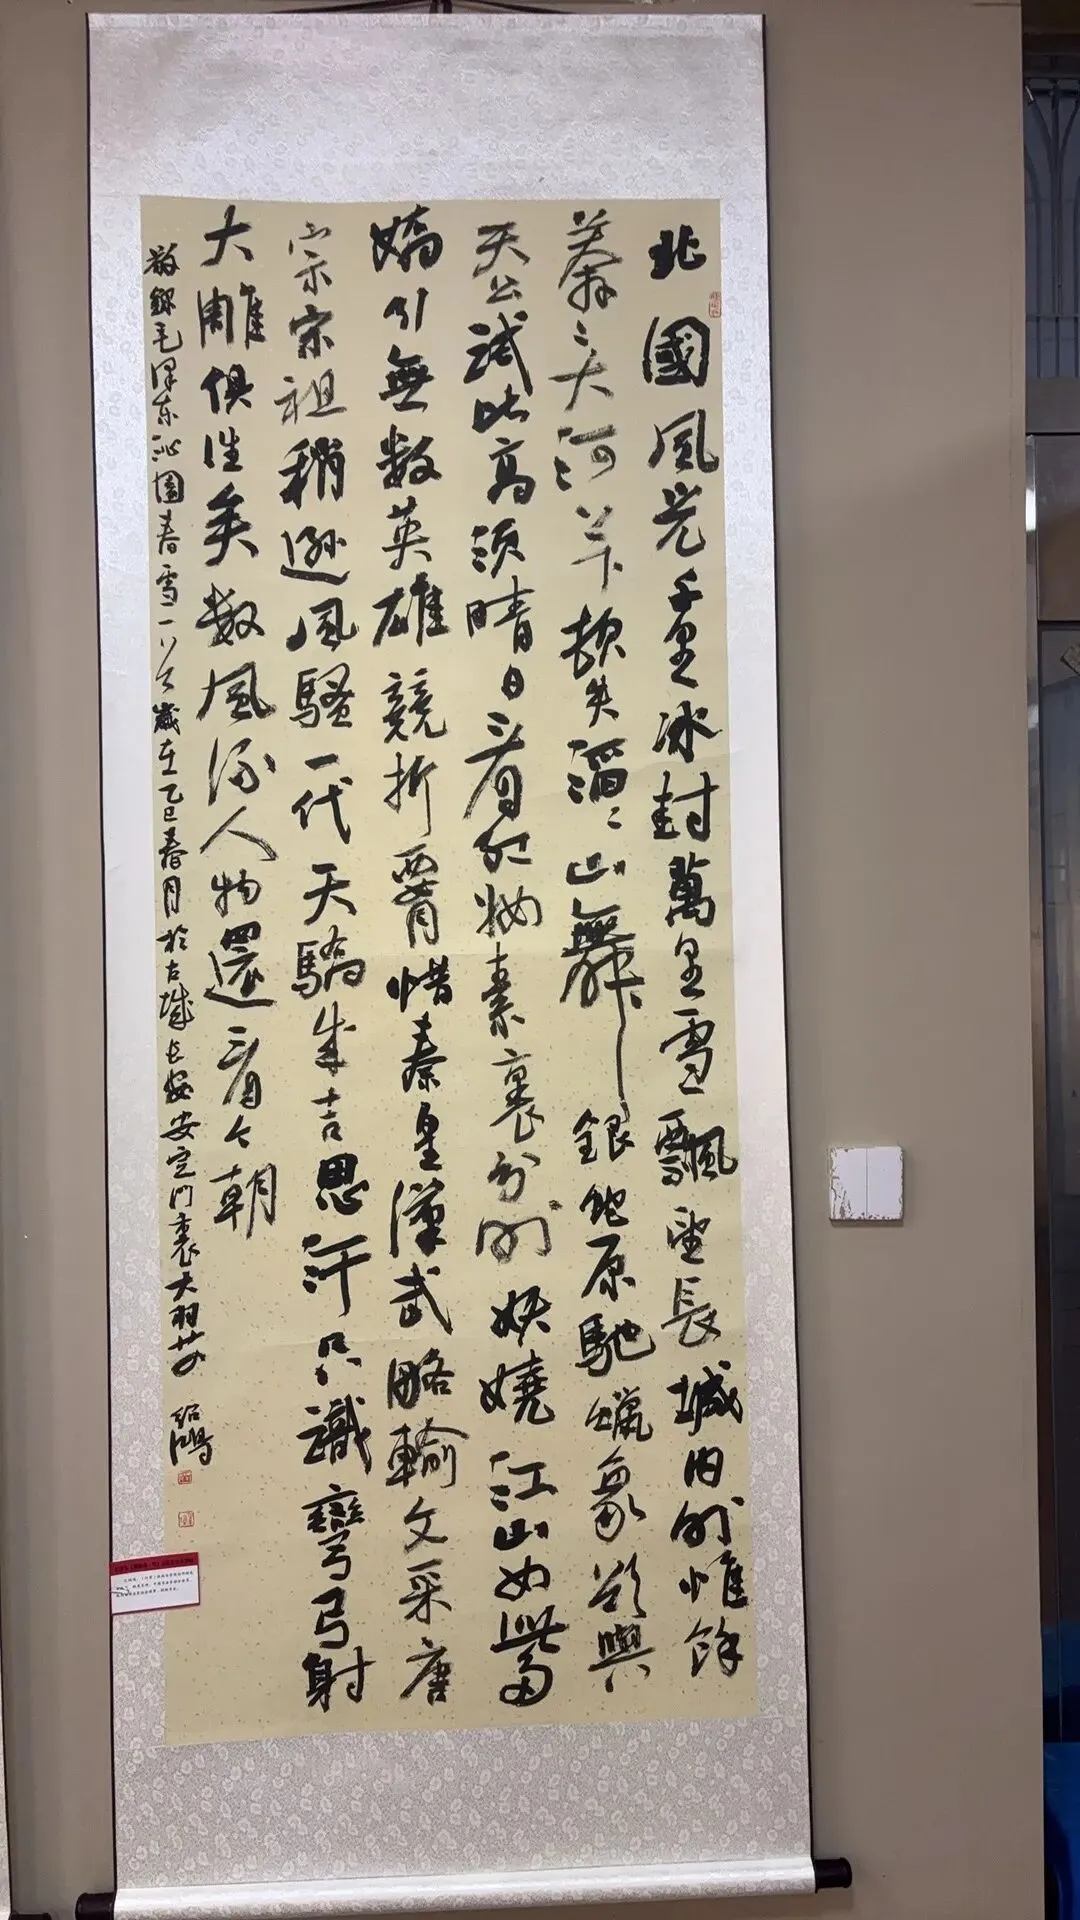 北國風光千里冰封萬里雪飄望長城內外惟餘
莽々大河上下頓失滔々山舞銀蛇原馳蠟象欲與
天公試比高須晴日看紅妝素裹分外妖嬈江山如此多
嬌引無數英雄競折腰惜秦皇漢武略輸文采唐
宗宋祖稍遜風騷一代天驕成吉思汗只識彎弓射
大雕俱往矣數風流人物還看今朝
敬錄毛澤东沁園春雪一
歲在乙巳春月於古城長安安定門裏大羽
紹鴻